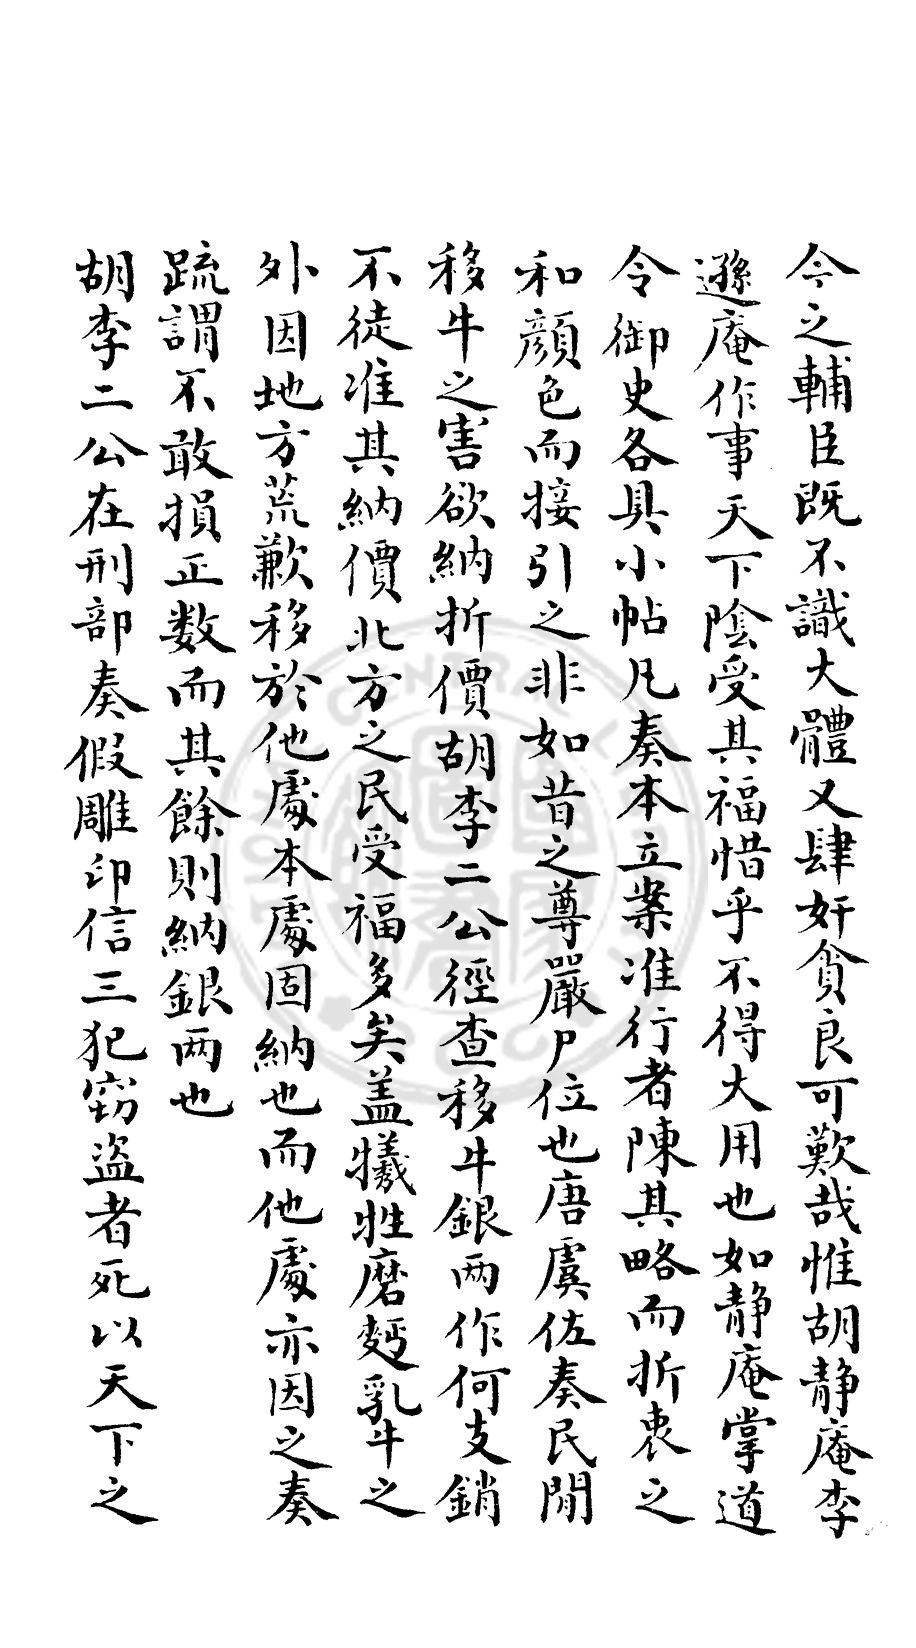 今之輔臣既不識大體又肆奸貪良可歎哉惟胡静庵李
遜庵作事天下陰受其福惜乎不得大用也如静庵掌道
令御史各具小帖凡奏本立案准行者陳其略而折衷之
和顔色而接引之非如昔之尊嚴尸位也唐虞佐奏民閒
移牛之害欲納折價胡李二公徑查移牛銀两作何支銷
不徒准其納價北方之民受福多矣盖犧牲磨麫乳牛之
外因地方荒歉移於他處本處固納也而他處亦因之奏
䟽謂不敢損正数而其餘則納銀两也
胡李二公在刑部奏假雕印信三犯竊盗者死以天下之